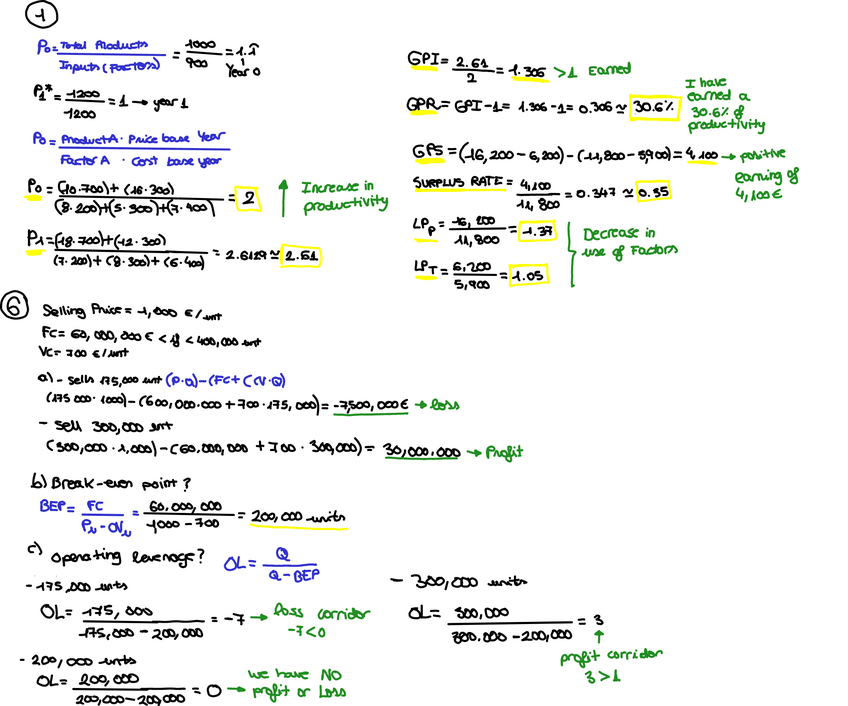 1
P₀ = Total Products / Inputs (Factors) = 1000 / 900 = 1.1̂
Year 0
P₁* = 1200 / 1200 = 1 → year 1
P₀ = Product A · Price base year / Factor A · Cost base year
P₀ = (10·700)+(16·300) / (8·200)+(5·300)+(7·400) = 2
↑ Increase in
productivity
P₁ = (18·700)+(12·300) / (7·200)+(8·300)+(6·400) = 2.6129 ≈ 2.61
GPI = 2.61 / 2 = 1.306 >1 Earned
GPR = GPI-1 = 1.306-1 = 0.306 ≈ 30.6%
I have
earned a
30.6% of
productivity
GPS = (16,200-6,200)-(11,800-5,900) = 4,100 → positive
earning of
4,100€
SURPLUS RATE = 4,100 / 11,800 = 0.347 ≈ 0.35
LPp = 16,200 / 11,800 = 1.37
LPT = 6,200 / 5,900 = 1.05
Decrease in
use of Factors
6
Selling Price = 1,000 €/unt
FC = 60,000,000 € < if < 400,000 unt
VC = 700 €/unt
a) - sells 175,000 unt (P·Q)-(FC+(CV·Q)
(175 000·1000)-(600,000.000+700·175,000) = -7,500,000€ → loss
- sell 300,000 unt
(300,000·1,000)-(60.000,000+700·300,000) = 30,000.000 → Profit
b) Break-even point?
BEP = FC / Pu-CVu = 60.000,000 / 1000-700 = 200,000 units
c) Operating leverage? OL = Q / Q-BEP
-175,000 units
OL = 175,000 / 175,000-200,000 = -7 → loss corridor
-7<0
- 200,000 units
OL = 200,000 / 200,000-200,000 = 0 → we have NO
profit or Loss
- 300,000 units
OL = 300,000 / 300.000-200,000 = 3
↑
profit corridor
3>1